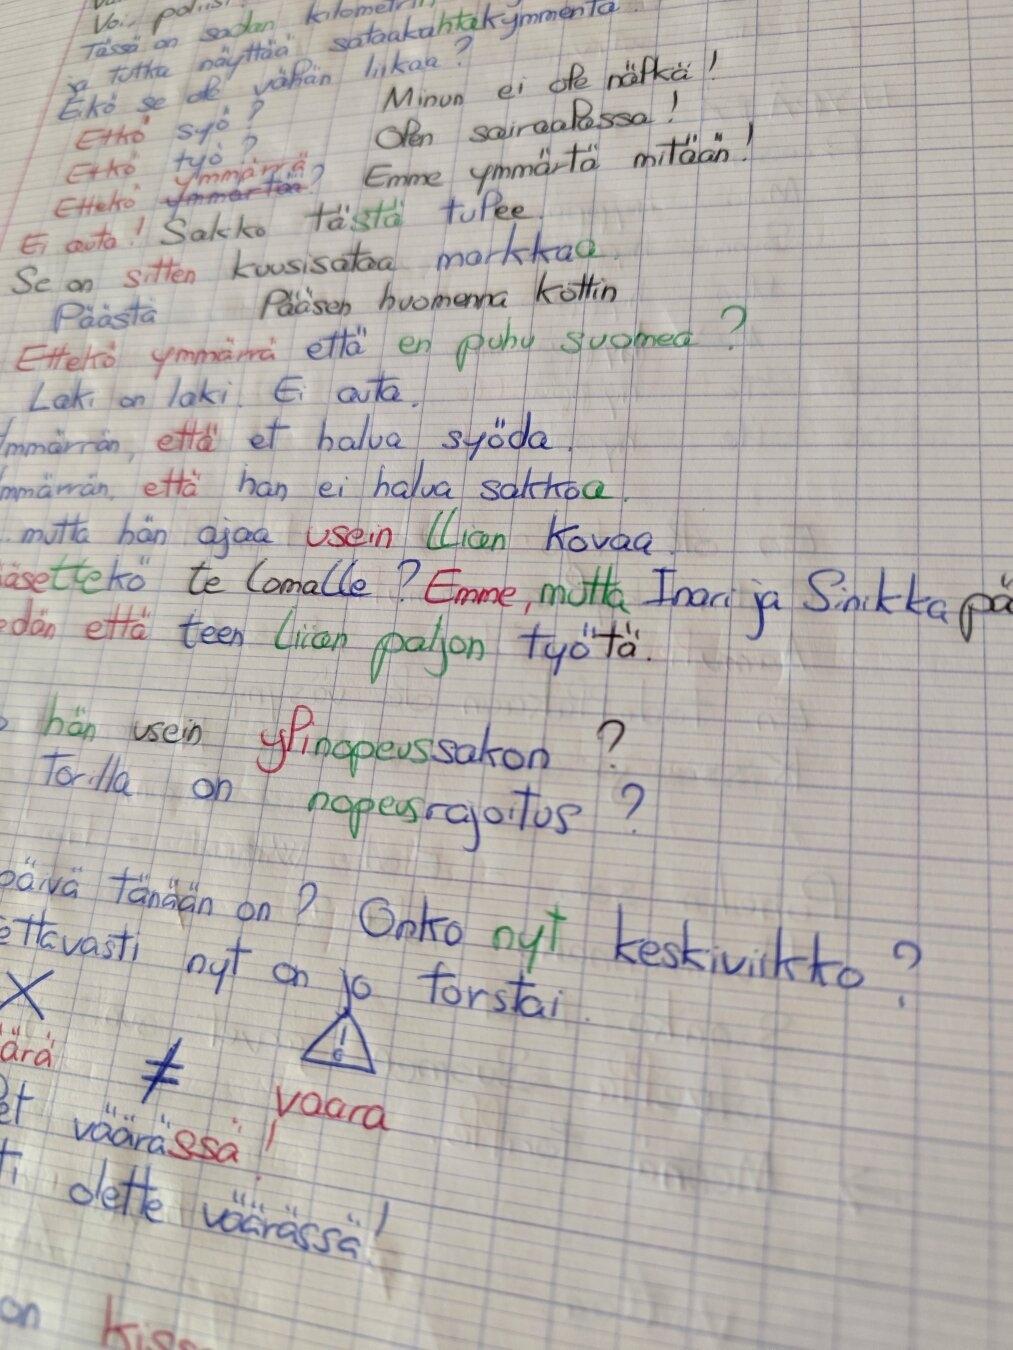 Voi polii
Tässä on sadan kilometrin
ja tutka näyttää sataakahtakymmentä
Eikö se ole vähän liikaa?
Etkö syö? Minun ei ole nälkä!
Etkö työ? Olen sairaalassa!
Ettekö ymmärrä? Emme ymmärtä mitään!
Ei auta! Sakko tästä tulee
Se on sitten kuusisataa markkaa.
Päästä Pääsen huomenna kottiin
Ettekö ymmärrä että en puhu suomea?
Laki on laki. Ei auta.
mmärrän, että et halua syöda.
mmärrän, että han ei halua sakkoa.
mutta hän ajaa usein liian kovaa.
äsettekö te lomalle? Emme, mutta Inari ja Sinikka pä
edän että teen liian paljon työtä.
hän usein ylinopeussakon?
Torilla on nopeusrajoitus?
päivä tänään on? Onko nyt keskiviikko?
ettavasti nyt on jo torstai.
ärä ≠ ! vaara
et väärässä!
ti olette väärässä!
on kiss